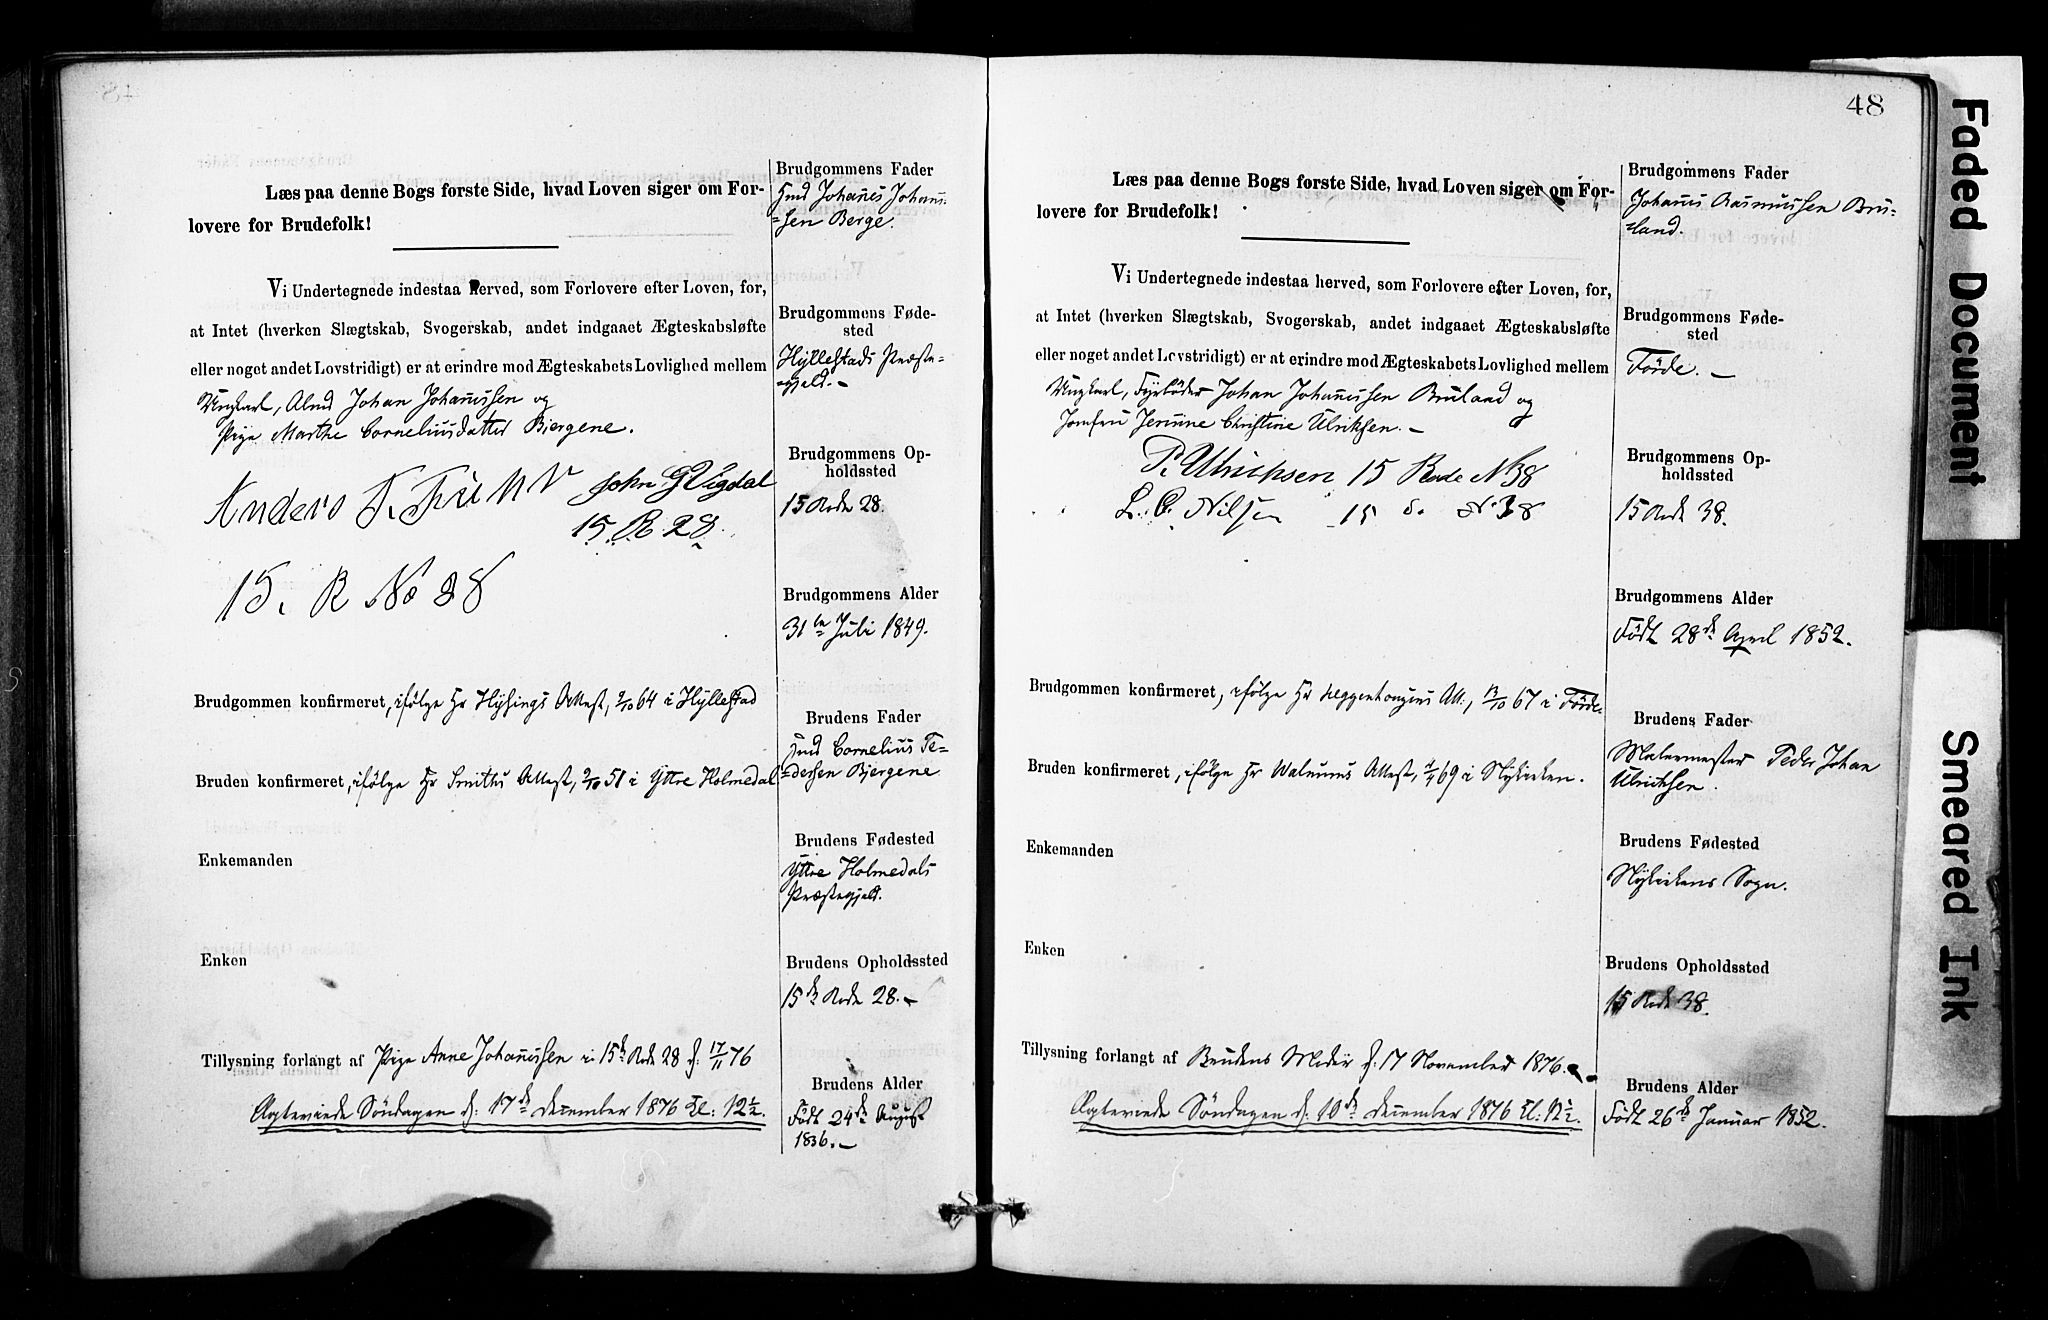 Læs paa denne Bogs første Side, hvad Loven siger om For-
lovere for Brudefolk!
Vi Undertegnede indestaa herved, som Forlovere efter Loven, for,
at Intet (hverken Slægtskab, Svogerskab, andet indgaaet Ægteskabsløfte
eller noget andet Lovstridigt) er at erindre mod Ægteskabets Lovlighed mellem
Ungkarl, Johan Johannssen og
Pige Marthe Corneliusdatter Bjergene.
Anders T.
John G Vigdal
15. R. 28.
15. R No 28
Brudgommen konfirmeret, ifølge Hr Hysings Attest, 2/10 64 i Hyllestad
Bruden konfirmeret, ifølge Hr Smiths Attest, 9/10 51 i Yttre Holmedal
Enkemanden
Enken
Tillysning forlangt af Pige Anne Johannssen i 15de Rode 28 d: 17/11 76
Ægteviede Søndagen d: 17de December 1876 Kl: 12½.
Brudgommens Fader
Gmd Johanes Johann-
sen Berge.
Brudgommens Føde-
sted
Hyllestads Præste-
gjeld.-
Brudgommens Op-
holdssted
15 Rode 28.
Brudgommens Alder
31te Juli 1849.
Brudens Fader
Gmd Cornelius Te-
dersen Bjergene
Brudens Fødested
Yttre Holmedals
Præstegjeld.
Brudens Opholdssted
15de Rode 28.-
Brudens Alder
Født 24de August
1836.-
48
Læs paa denne Bogs første Side, hvad Loven siger om For-
lovere for Brudefolk!
Vi Undertegnede indestaa herved, som Forlovere efter Loven, for,
at Intet (hverken Slægtskab, Svogerskab, andet indgaaet Ægteskabsløfte
eller noget andet Lovstridigt) er at erindre mod Ægteskabets Lovlighed mellem
Ungkarl, Fyrbøder Johan Johannssen Bruland og
Jomfru Jerinne Christine Ulriksen.-
P. Ulricksen 15 Rode N 38
L. C. Nilsen 15 d. N. 38
Brudgommen konfirmeret, ifølge Hr Heggenhougens Att:, 13/10 67 i Førde.
Bruden konfirmeret, ifølge Hr Walnums Attest, 69, i Nykirken.
Enkemanden
Enken
Tillysning forlangt af Brudens Moder d: 17 November 1876.
Ægteviede Søndagen d: 10de December 1876 Kl: 12½.
Brudgommens Fader
Johannes Rasmussen Bru-
land.
Brudgommens Føde-
sted
Førde.-
Brudgommens Op-
holdssted
15 Rode 38.
Brudgommens Alder
Født 28de April 1852.
Brudens Fader
Malermester Peder Johan
Ulricksen.
Brudens Fødested
Nykirkens Sogn.
Brudens Opholdssted
15 Rode 38.
Brudens Alder
Født 26de Januar 1852.
Faded Document
Smeared Ink